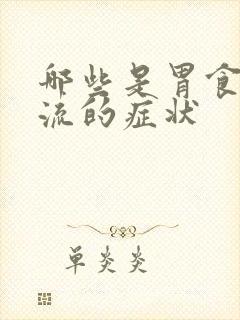 哪些是胃食
流的症状
单炎炎